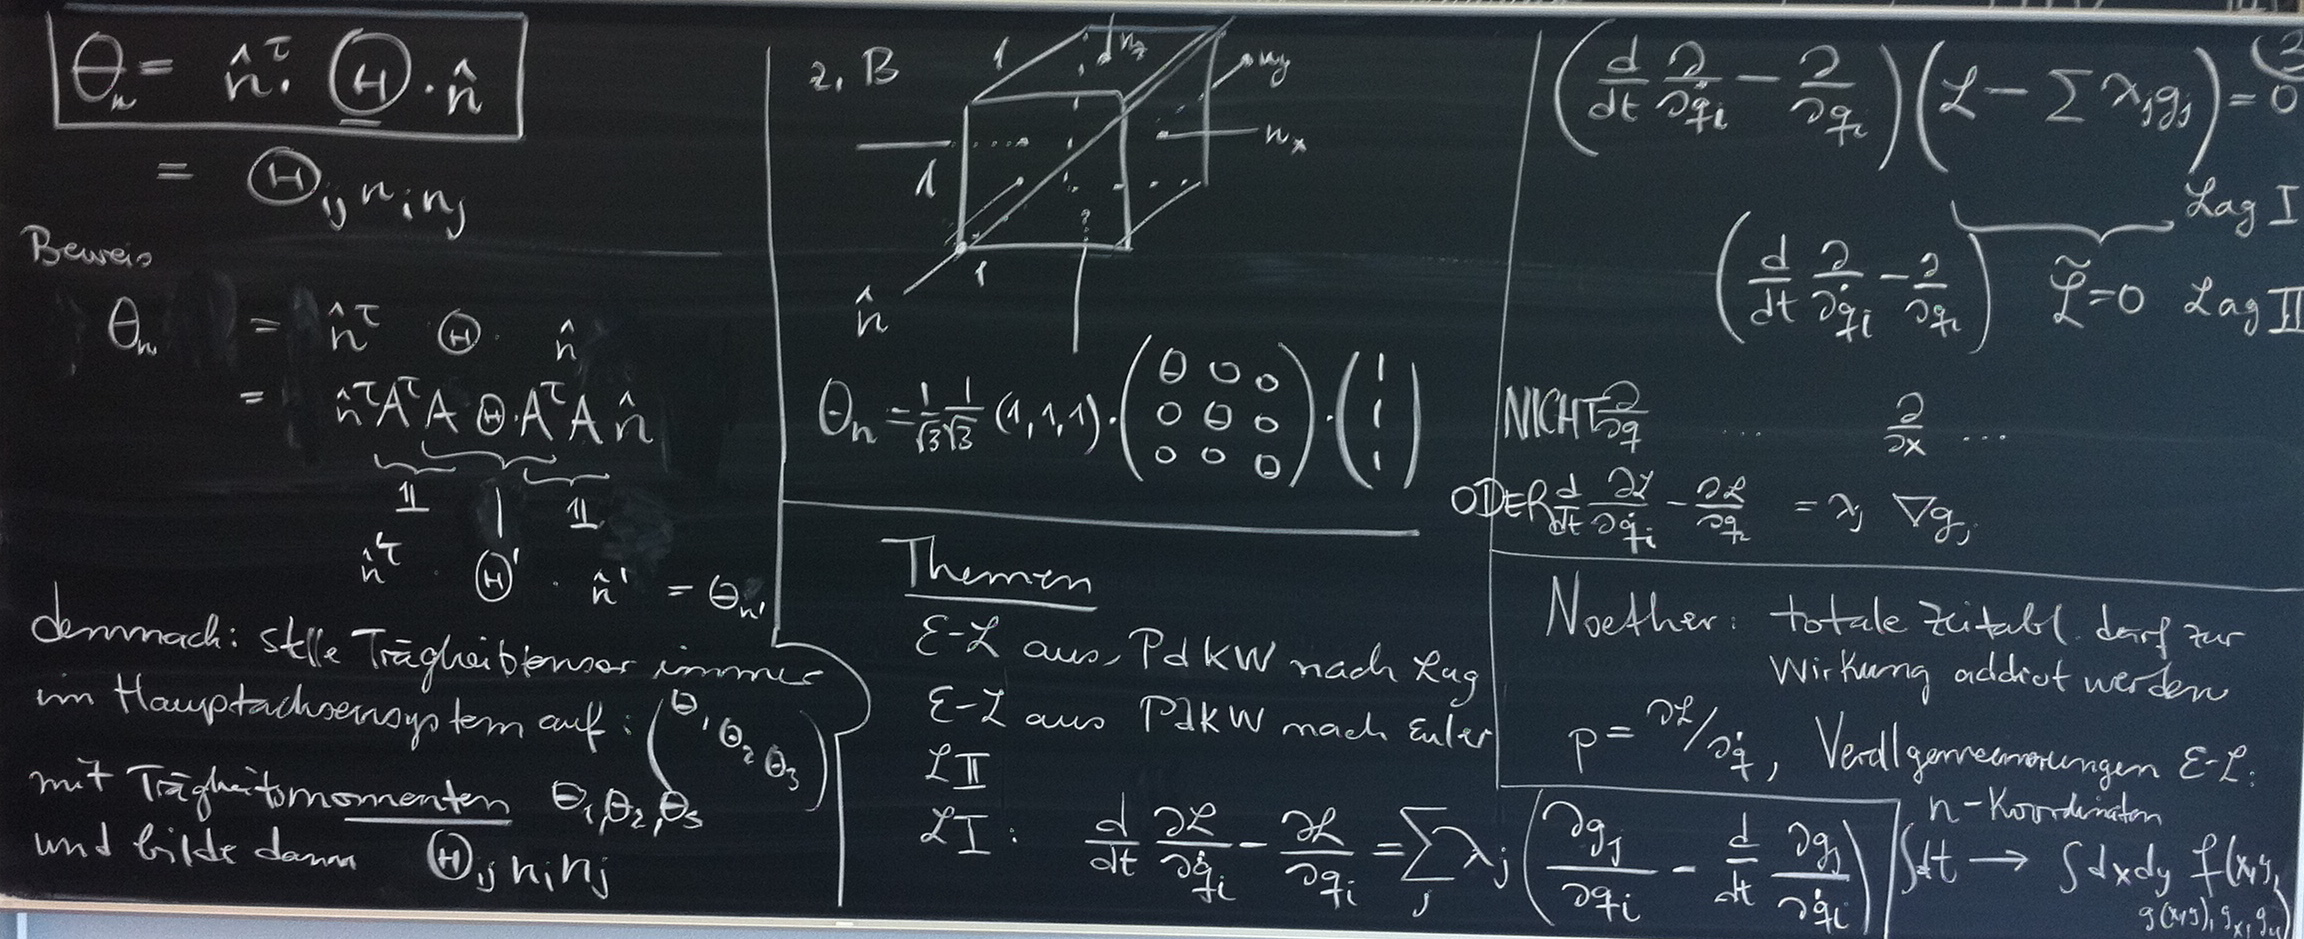 θₙ = n̂ᵀ · Θ · n̂
= Θᵢⱼ nᵢ nⱼ
Beweis
θₙ = n̂ᵀ Θ · n̂
= n̂ᵀAᵀA Θ·AᵀA n̂
𝟙 | 𝟙
n̂'ᵀ · Θ' · n̂' = θₙ'
demnach: stelle Trägheitstensor immer
im Hauptachsensystem auf: (θ₁ θ₂ θ₃)
mit Trägheitsmomenten θ₁, θ₂, θ₃
und bilde dann Θᵢⱼ nᵢ nⱼ
z. B
1 n_z n_y
1 n_x
1
n̂
θₙ = 1/√3 1/√3 (1,1,1) · (θ 0 0
0 θ 0
0 0 θ) · (1
1
1)
Themen
E-L aus PdKW nach Lag
E-L aus PdKW nach Euler
L II
L I : d/dt ∂L/∂q̇ᵢ − ∂L/∂qᵢ = ∑ⱼ λⱼ (∂gⱼ/∂qᵢ − d/dt ∂gⱼ/∂q̇ᵢ)
(d/dt ∂/∂q̇ᵢ − ∂/∂qᵢ)(L − ∑ λⱼgⱼ) = 0
Lag I
(d/dt ∂/∂q̇ᵢ − ∂/∂qᵢ) L̃=0 Lag II
NICHT ∂/∂q ... ∂/∂x ...
ODER d/dt ∂L/∂q̇ᵢ − ∂L/∂qᵢ = λⱼ ∇gⱼ
Noether: totale Zeitabl. darf zur
Wirkung addiert werden
p = ∂L/∂q̇, Verallgemeinerungen E-L:
n-Koordinaten
∫dt → ∫dxdy f(x,y,
g(x,y), gₓ, g_y)